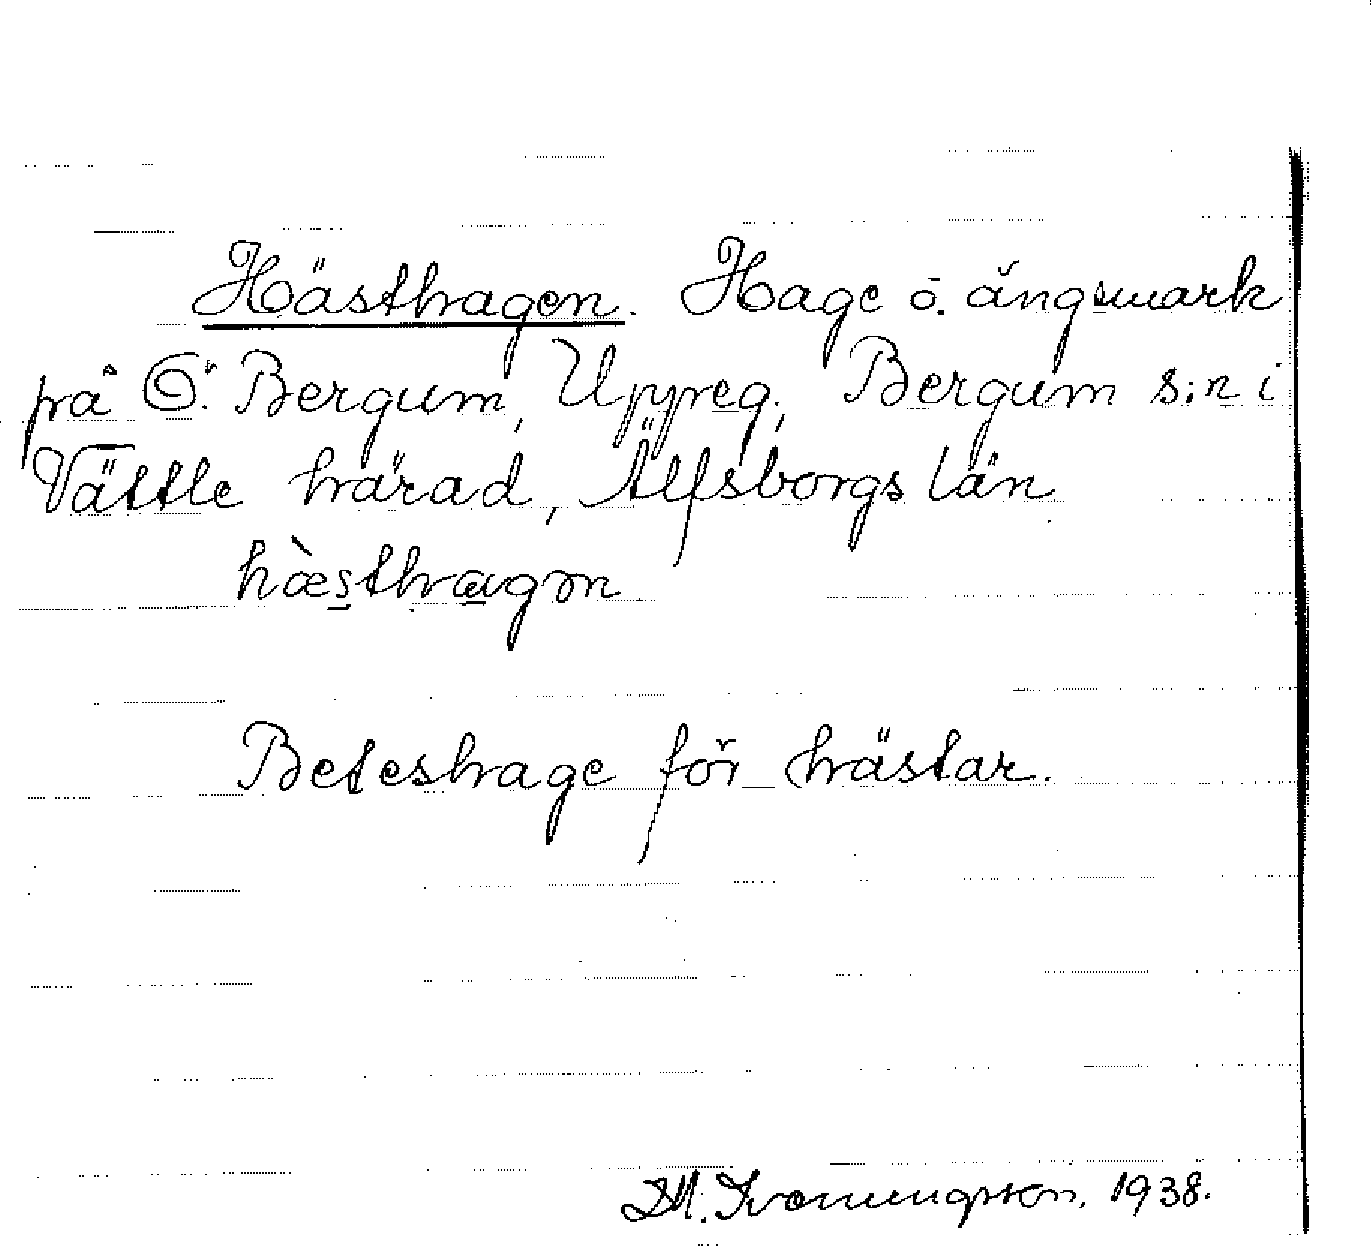 Hästhagen. Hage o. ängsmark
på Ö. Bergum, Uppreg, Bergum s:n i
Vättle härad, Älfsborgs län
hæ̀sthagən
Beteshage för hästar.
M. 1938.